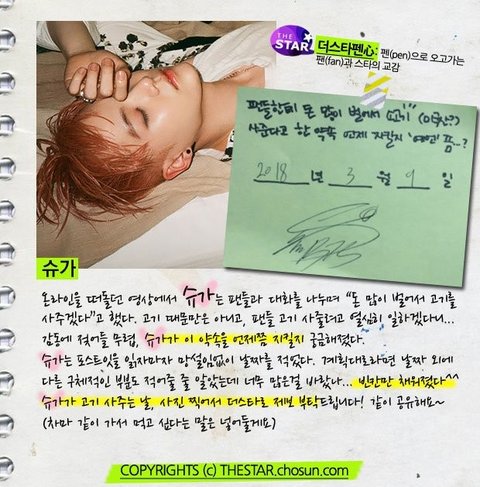 THE STAR
더스타펜心: 팬(pen)으로 오고가는
팬(fan)과 스타의 교감
팬들한테 돈 많이 벌어서 고기
사준다고 한 약속 언제 지킬지
2018 년 3 월 9 일
슈가
온라인을 떠돌던 영상에서 슈가는 팬들과 대화를 나누며 "돈 많이 벌어서 고기를
사주겠다"고 했다. 고기 때문만은 아니고, 팬들 고기 사줄려고 열심히 일하겠다니...
감동에 젖어들 무렵, 슈가가 이 약속을 언제쯤 지킬지 궁금해졌다.
슈가는 포스트잇을 읽자마자 망설임없이 날짜를 적었다. 계획대로라면 날짜 외에
다른 구체적인 부분도 적어줄 줄 알았는데 너무 많은걸 바랐나... 빈칸만 채워졌다^^
슈가가 고기 사주는 날, 사진 찍어서 더스타로 제보 부탁드립니다! 같이 공유해요~
(차마 같이 가서 먹고 싶다는 말은 넣어둘게요)
COPYRIGHTS (c) THESTAR.chosun.com